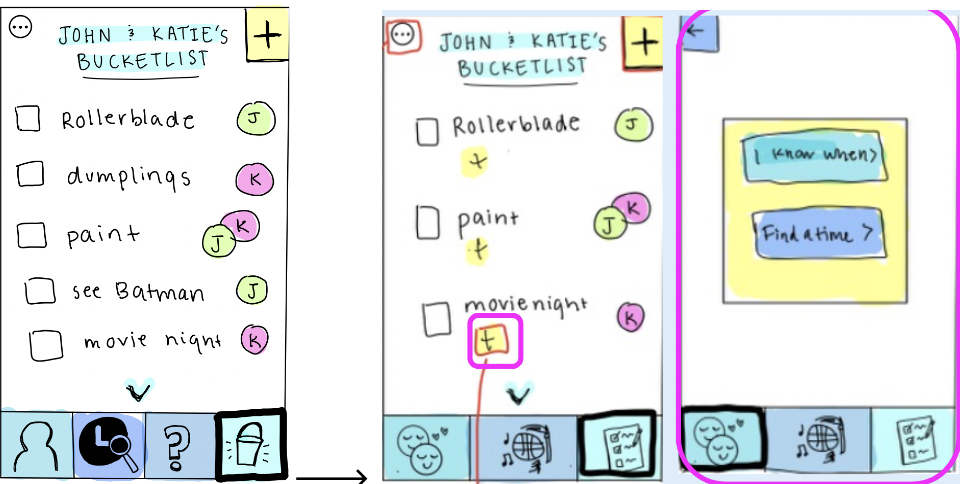 JOHN & KATIE'S
BUCKETLIST
+
Rollerblade J
dumplings K
paint J K
see Batman J
movie night K
?
JOHN & KATIE'S
BUCKETLIST
+
Rollerblade J
+
paint J K
+
movie night K
+
←
I know when >
Find a time >